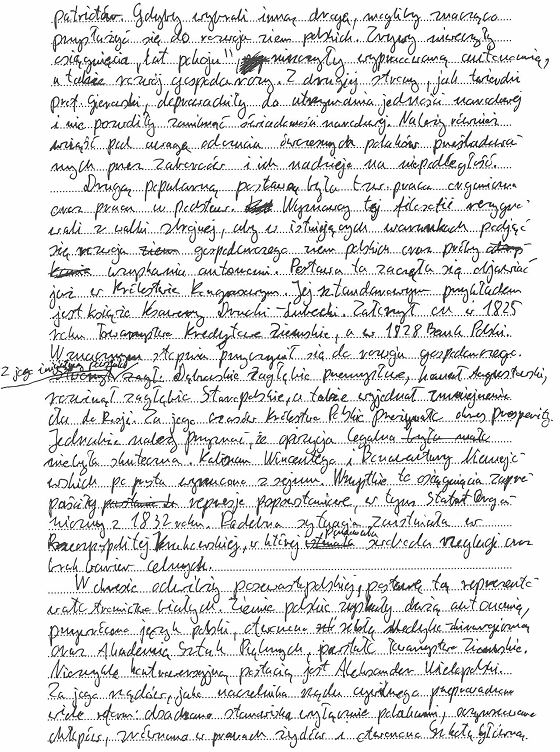 patriotów. Gdyby wybrali inną drogę, mogliby znacząco
przysłużyć się do rozwoju ziem polskich. Zrywy niweczyły
osiągnięcia "lat pokoju", niszczyły wypracowaną autonomię,
a także rozwój gospodarczy. Z drugiej strony, jak twierdzi
prof. Gierowski, doprowadziły do utrzymania jedności narodowej
i nie pozwoliły zaniknąć świadomości narodowej. Należy również
wziąść pod uwagę odczucia ówczesnych polaków prześladowa-
nych przez zaborców i ich nadzieje na niepodległość.
Drugą popularną postawą była tzw. praca organiczna
oraz praca u podstaw. Wyznawcy tej filozofii rezygno-
wali z walki zbrojnej, aby w istniejących warunkach podjąć
się rozwoju ziem gospodarczego ziem polskich oraz próby
uzyskania autonomii. Postawa ta zaczęła się objawiać
już w Królestwie Kongresowym. Jej sztandarowym przykładem
jest książę Ksawery Drucki-Lubecki. Założył on w 1825
roku Towarzystwo Kredytowe Ziemskie, a w 1828 Bank Polski.
W znacznym stopniu przyczynił się do rozwoju gospodarczego.
Z jego inicjatywy powstało
zagł. Dąbrowskie Zagłębie przemysłowe, kanał Augustowski,
rozwinął zagłębie Staropolskie, a także wyjednał zmniejszenie
ceł do Rosji. Za jego czasów Królestwo Polskie przeżywało okres prosperity.
Jednakże należy przyznać, że opozycja legalna była mało
niebyła skuteczna. Kaliszan Wincentego i Bonawentury Niemoje-
wskich po prostu wyrzucono z sejmu. Wszystkie te osiągnięcia zaprze-
paściły powstanie do represje popowstaniowe, w tym Statut Orga-
niczny z 1832 roku. Podobna sytuacja zaistniała w
Rzeczpospolitej Krakowskiej, w której istniała panowała swoboda religii oraz
brak barier celnych.
W okresie odwilży posewastpolskiej, postawę tą reprezento-
wało stronnictwo białych. Ziemie polskie uzyskały dużą autonomię,
przywrócono język polski, otworzono szkołę Medyko-chirurgiczną
oraz Akademię Sztuk Pięknych, powstało Towarzystwo Ziemskie.
Niezwykle kontrowersyjną postacią jest Aleksander Wielopolski.
Za jego rządów, jako naczelnika rządu cywilnego przeprowadzono
wiele reform: obsadzano stanowiska wyłącznie polakami, oczynszowano
chłopów, zrównano w prawach żydów i otworzono Szkołę Główną.